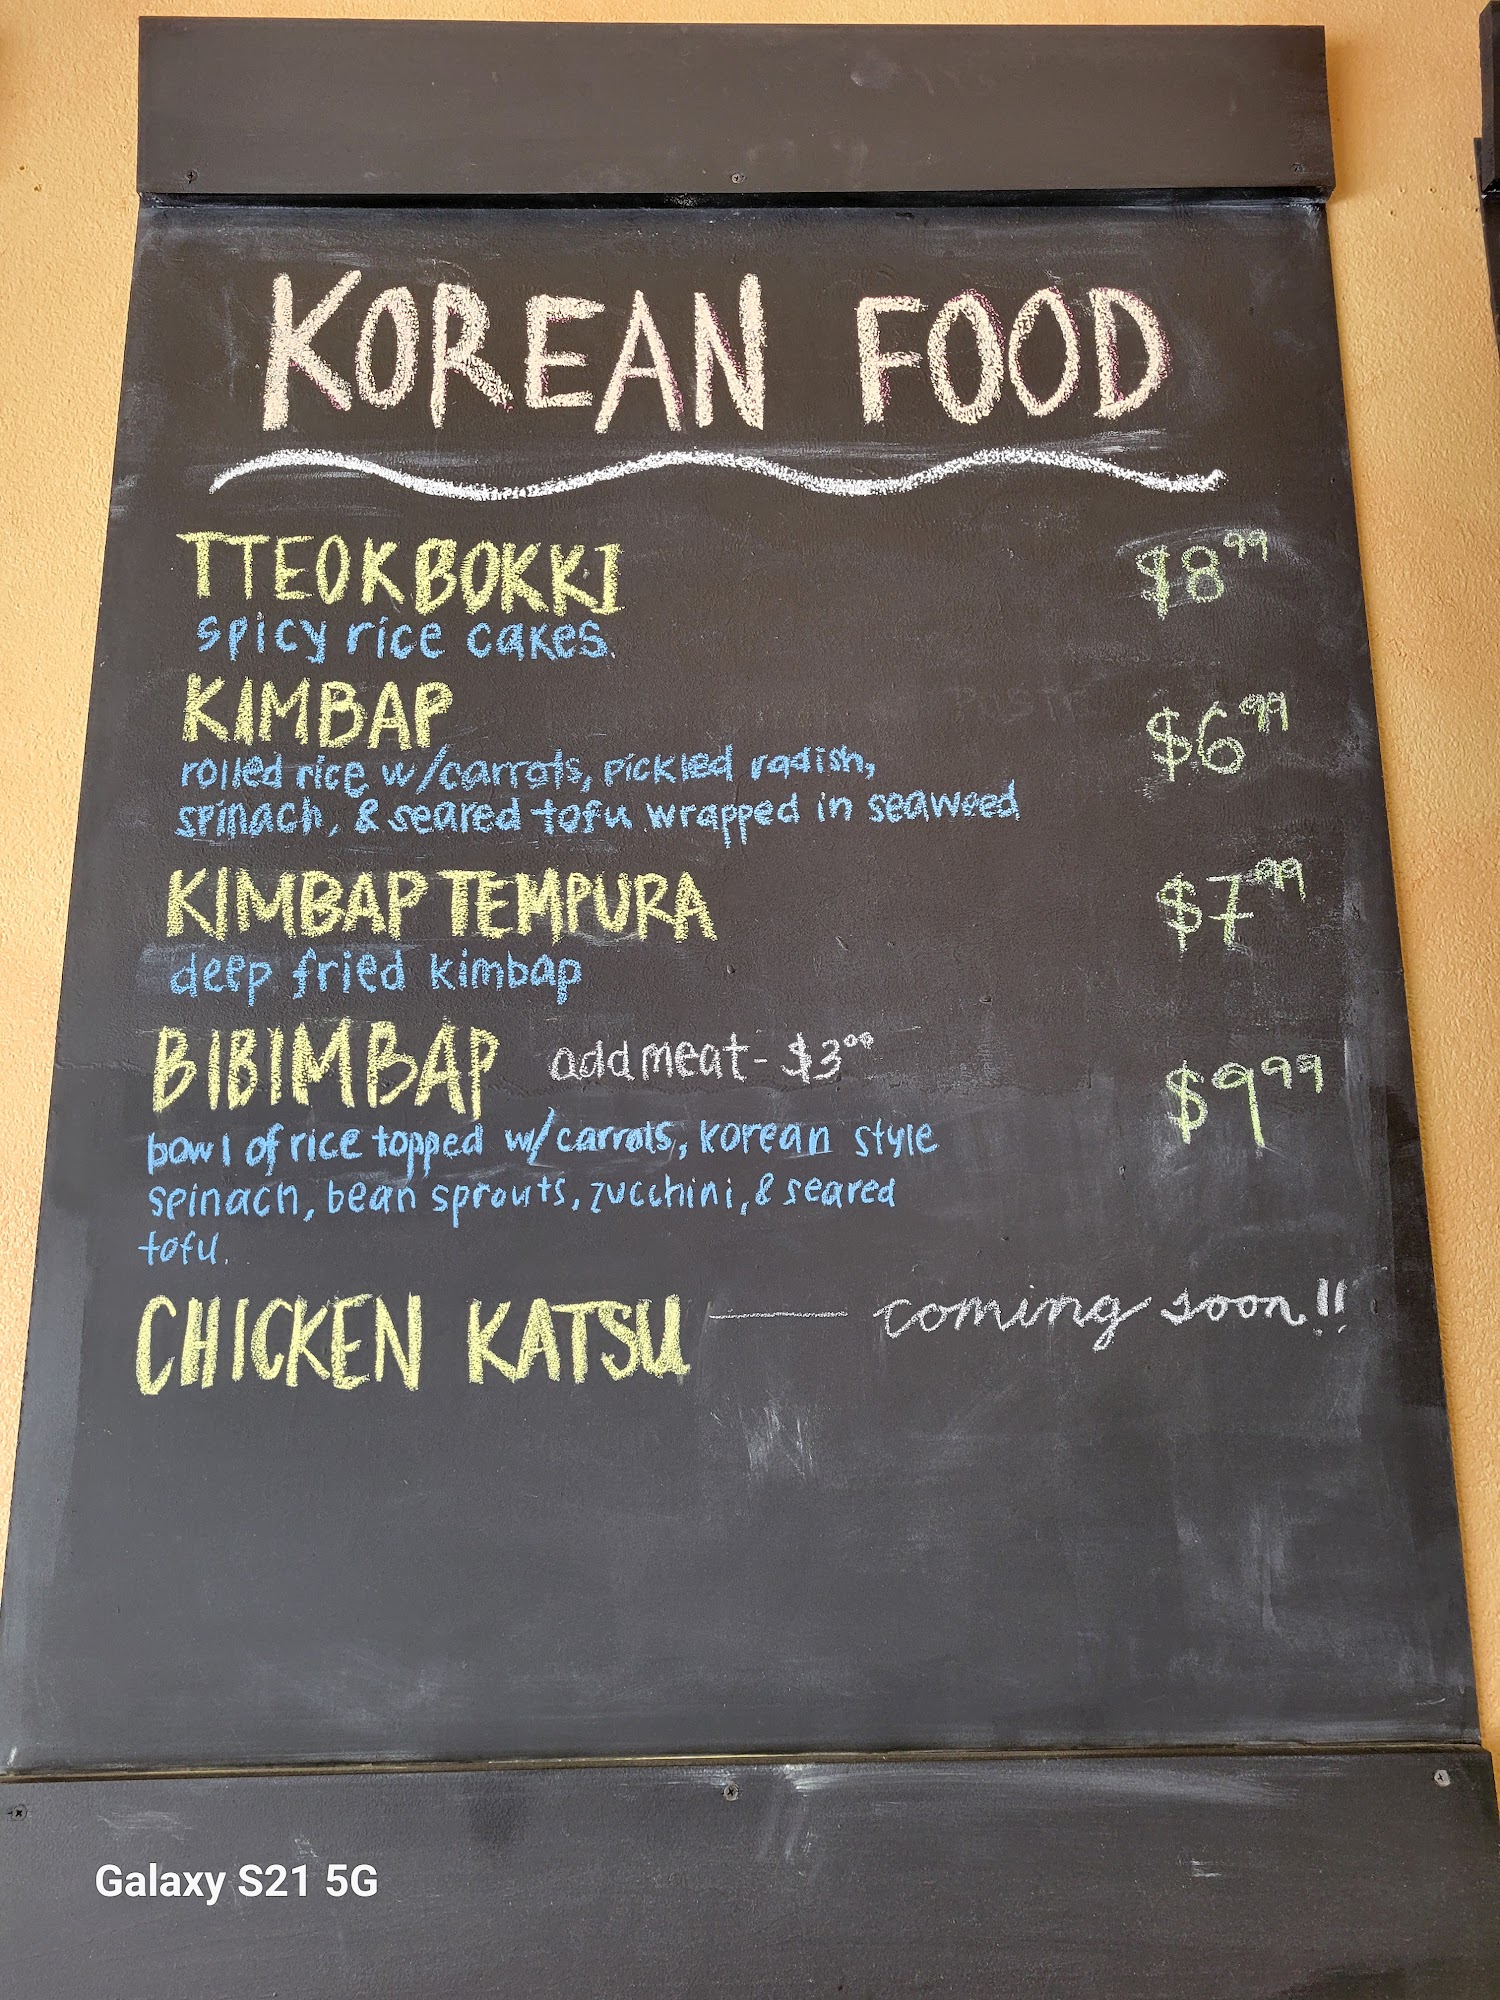 KOREAN FOOD
TTEOKBOKKI $8.99
spicy rice cakes.
KIMBAP $6.99
rolled rice w/carrots, pickled radish,
spinach, & seared tofu wrapped in seaweed
KIMBAP TEMPURA $7.99
deep fried kimbap
BIBIMBAP add meat - $3.00 $9.99
bowl of rice topped w/carrots, korean style
spinach, bean sprouts, zucchini, & seared
tofu.
CHICKEN KATSU — coming soon!!
Galaxy S21 5G